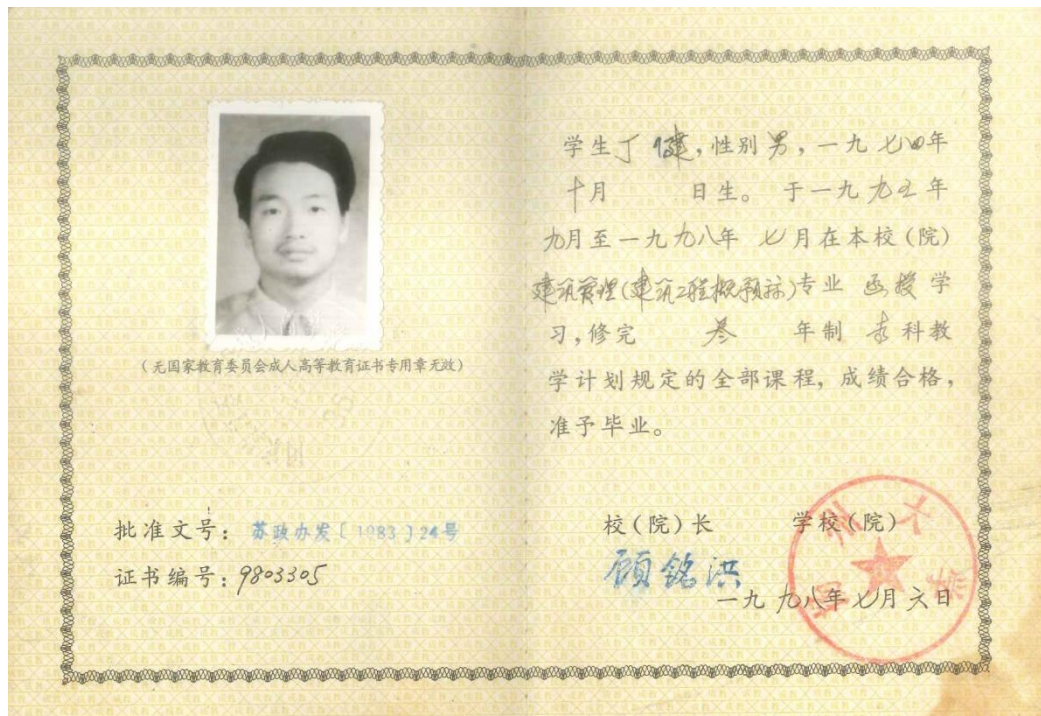 (无国家教育委员会成人高等教育证书专用章无效)
批准文号: 苏政办发〔1983〕24号
证书编号: 9803305
学生丁健,性别男,一九七四年
十月 日生。于一九九五年
九月至一九九八年 七月在本校(院)
建筑管理(建筑工程概预算)专业 函授学
习,修完 叁 年制 专科教
学计划规定的全部课程,成绩合格,
准予毕业。
校(院)长 学校(院)
顾铭洪
一九九八年七月六日
大学